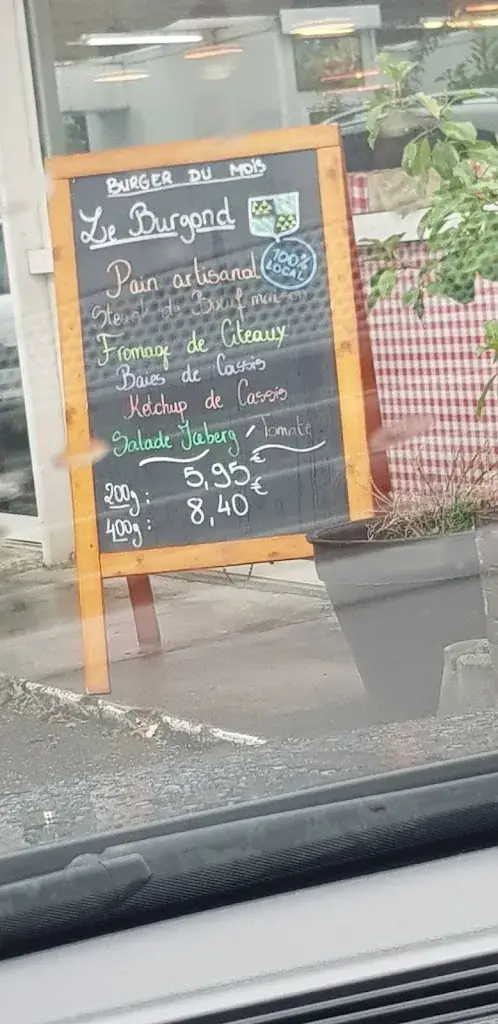 BURGER DU MOIS
Le Burgond
100% LOCAL
Pain artisanal
Steak de Boeuf maison
Fromage de Citeaux
Baies de Cassis
Ketchup de Cassis
Salade Iceberg / Tomate
200g : 5,95€
400g : 8,40€